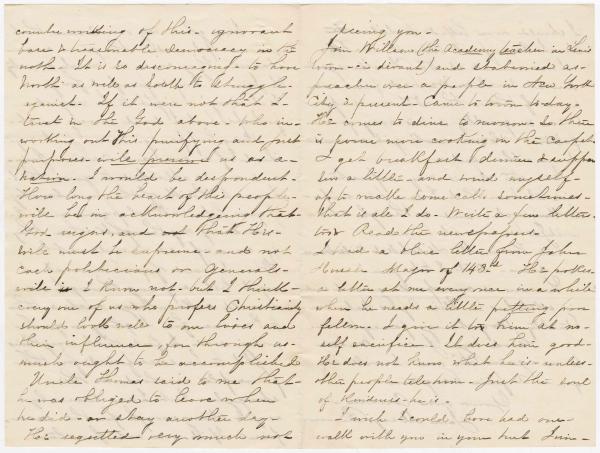 countermining of this - ignorant
base & treasonable Democracy in the
north. It is so discouraging to have
North as well as South to struggle
against. If it were not that I
trust in the God above - who in
working out this purifying and just
purposes - will preserve us as a
nation. I would be despondent.
How long the heart of this people
will be in acknowledging that
God reigns, and that His
will must be supreme - and not
politicians or Generals -
will is I know not - but I think
every one of us who profess Christianity
should look well to our lives and
their influence, for through us
much ought to be accomplished
Uncle Thomas said to me that
he was obliged to leave when
he did - or stay another day -
He regretted very much not
seeing you -
Jim Willson (the Academy teacher in Lewis
town - ci devant) and stationed as
preacher over a people in New York
City at present - Came to town today.
He comes to dine to morrow - So there
is some more cooking on the carpet.
I get breakfast dinner & supper
Sew a little - and wind myself
up to make some calls sometimes -
that is all I do - Write a few letters
too Read the newspapers -
I had a blue letter from John
Major of 148th - He pokes
a letter at me every once in a while
when he needs a little petting poor
fellow - I give it to him at no
self sacrifice. It does him good -
He does not know what he is - unless
other people tell him - Just the soul
of kindness - he is -
I wish I could have had one
walk with you in your but Jim -